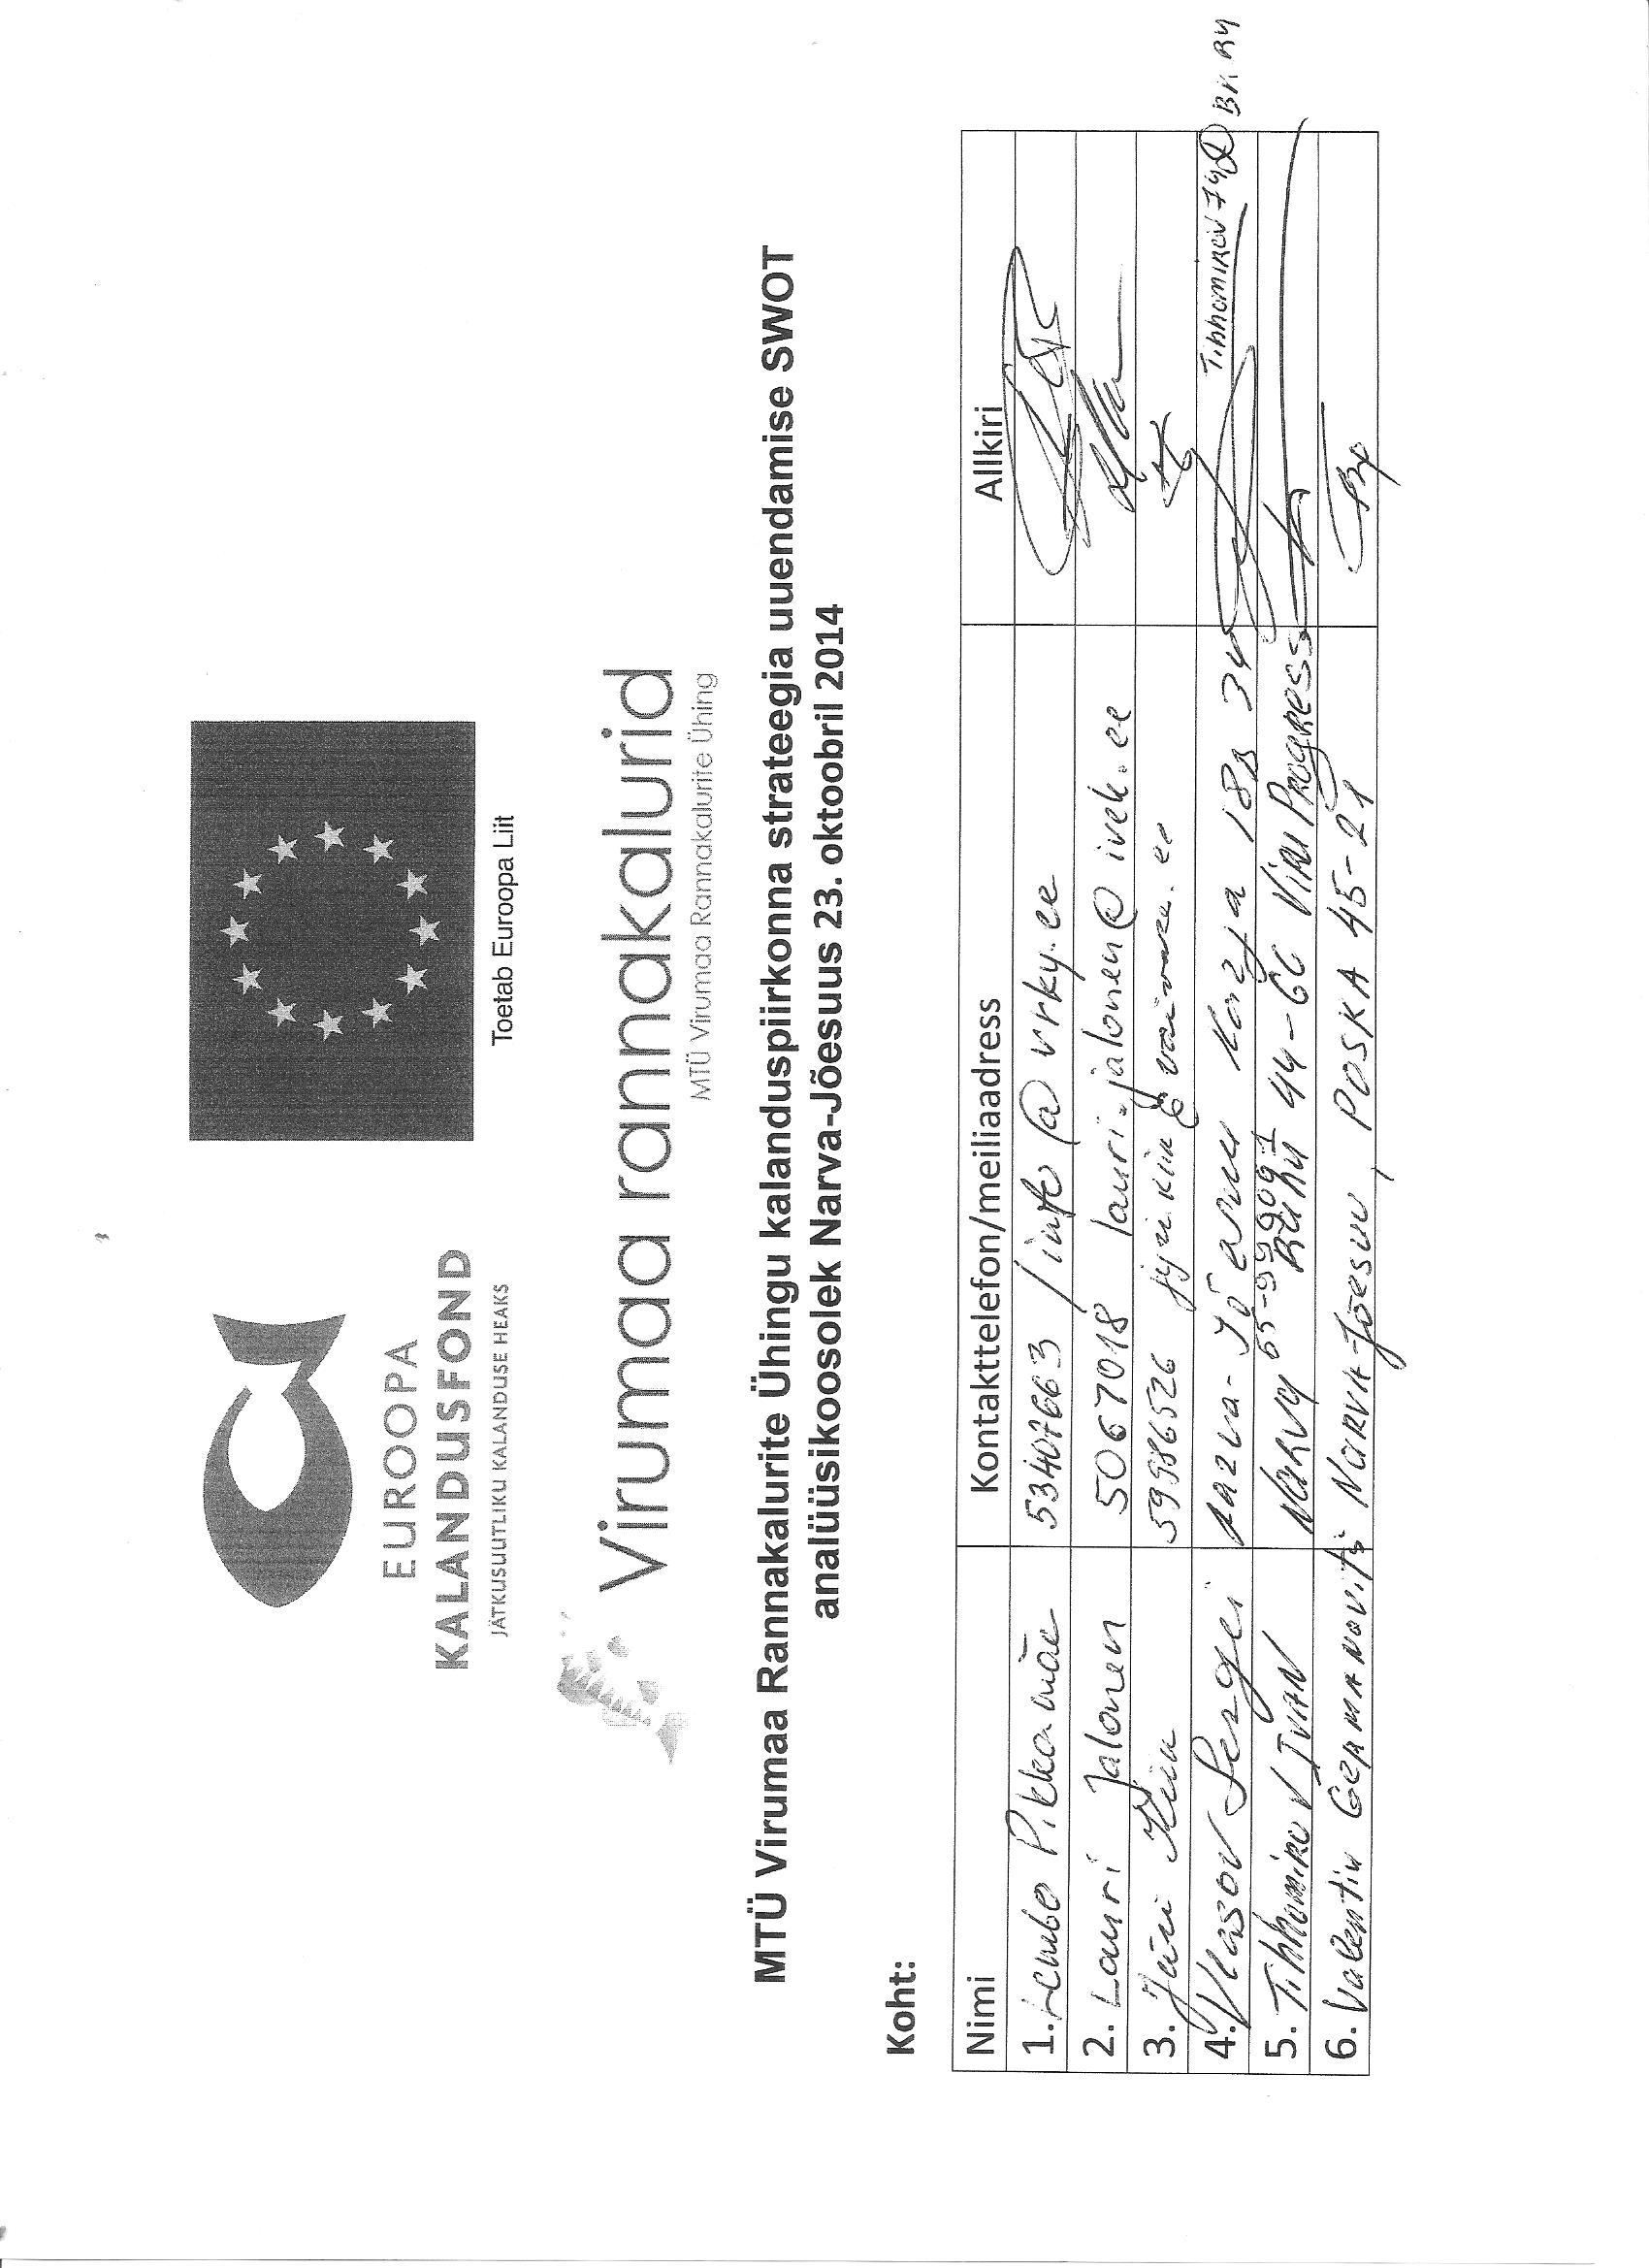 EUROOPA
KALANDUSFOND
JÄTKUSUUTLIKU KALANDUSE HEAKS
Toetab Euroopa Liit
Virumaa rannakalurid
MTÜ Virumaa Rannakalurite Ühing
MTÜ Virumaa Rannakalurite Ühingu kalanduspiirkonna strateegia uuendamise SWOT
analüüsikoosolek Narva-Jõesuus 23. oktoobril 2014
Koht:
Nimi Kontakttelefon/meiliaadress Allkiri
1. Lembo Pikkamäe 53407663 / info@vrky.ee
2. Lauri Jalonen 5067018 lauri.jalonen@ivek.ee
3. Jüri Kiik 59986526
4. Vlasov Sergei 18B 34 TIHHOMIROV
5. Tihhomirov IVAN Narva 44-66 Viru PROGRESS
6. Valentin GERMANOVITŠ NARVA-Jõesuu POSKA 45-21